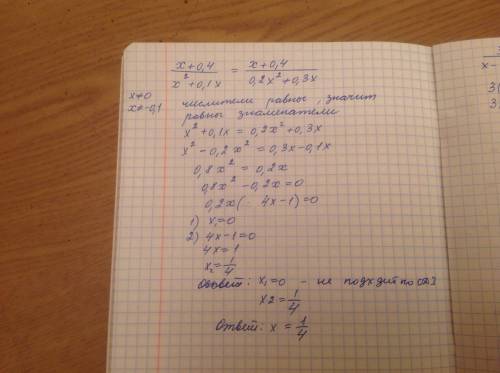 x+0,4 / x²+0,1x = x+0,4 / 0,2x²+0,3x
x≠0
x≠-0,1 числители равное, значит
равны знаменатели
x²+0,1x = 0,2x²+0,3x
x²-0,2x² = 0,3x-0,1x
0,8x² = 0,2x
0,8x²-0,2x=0
0,2x( 4x-1)=0
1) x₁=0
2) 4x-1=0
4x=1
x₂=1/4
Ответ: x₁=0 - не подходит по ОДЗ
x2=1/4
Ответ: x = 1/4
x-
3(
3